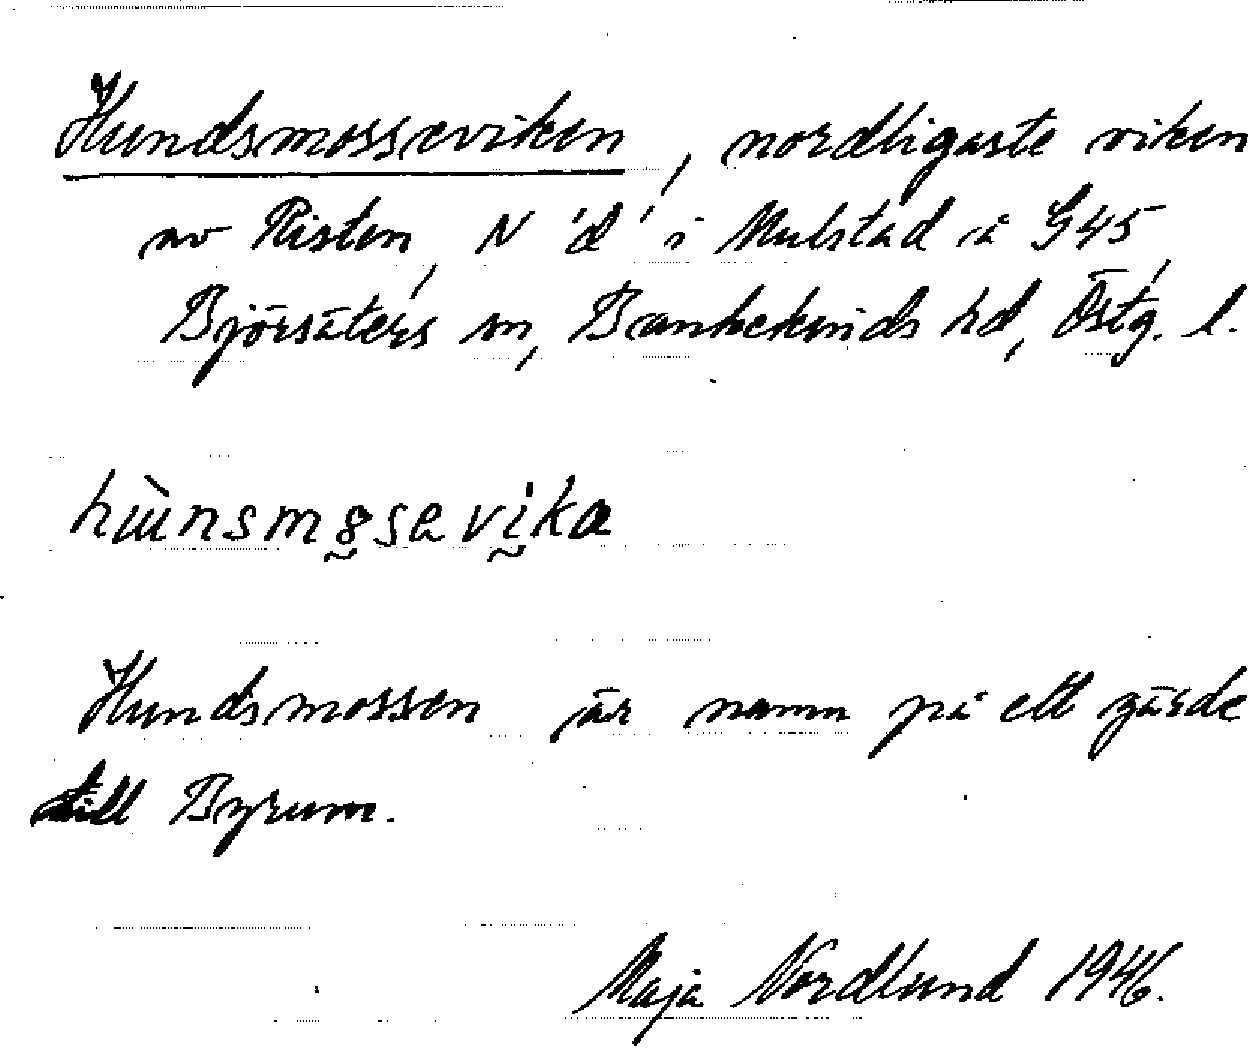 Hundsmosseviken, nordligaste viken
av Risten, N 'd' i Mulstad å G45,
Björsäters sn, Bankekinds hd, Östg. l.
Hundsmossen är namn på ett gärde
till Byrum.
Maja Nordlund 1946.